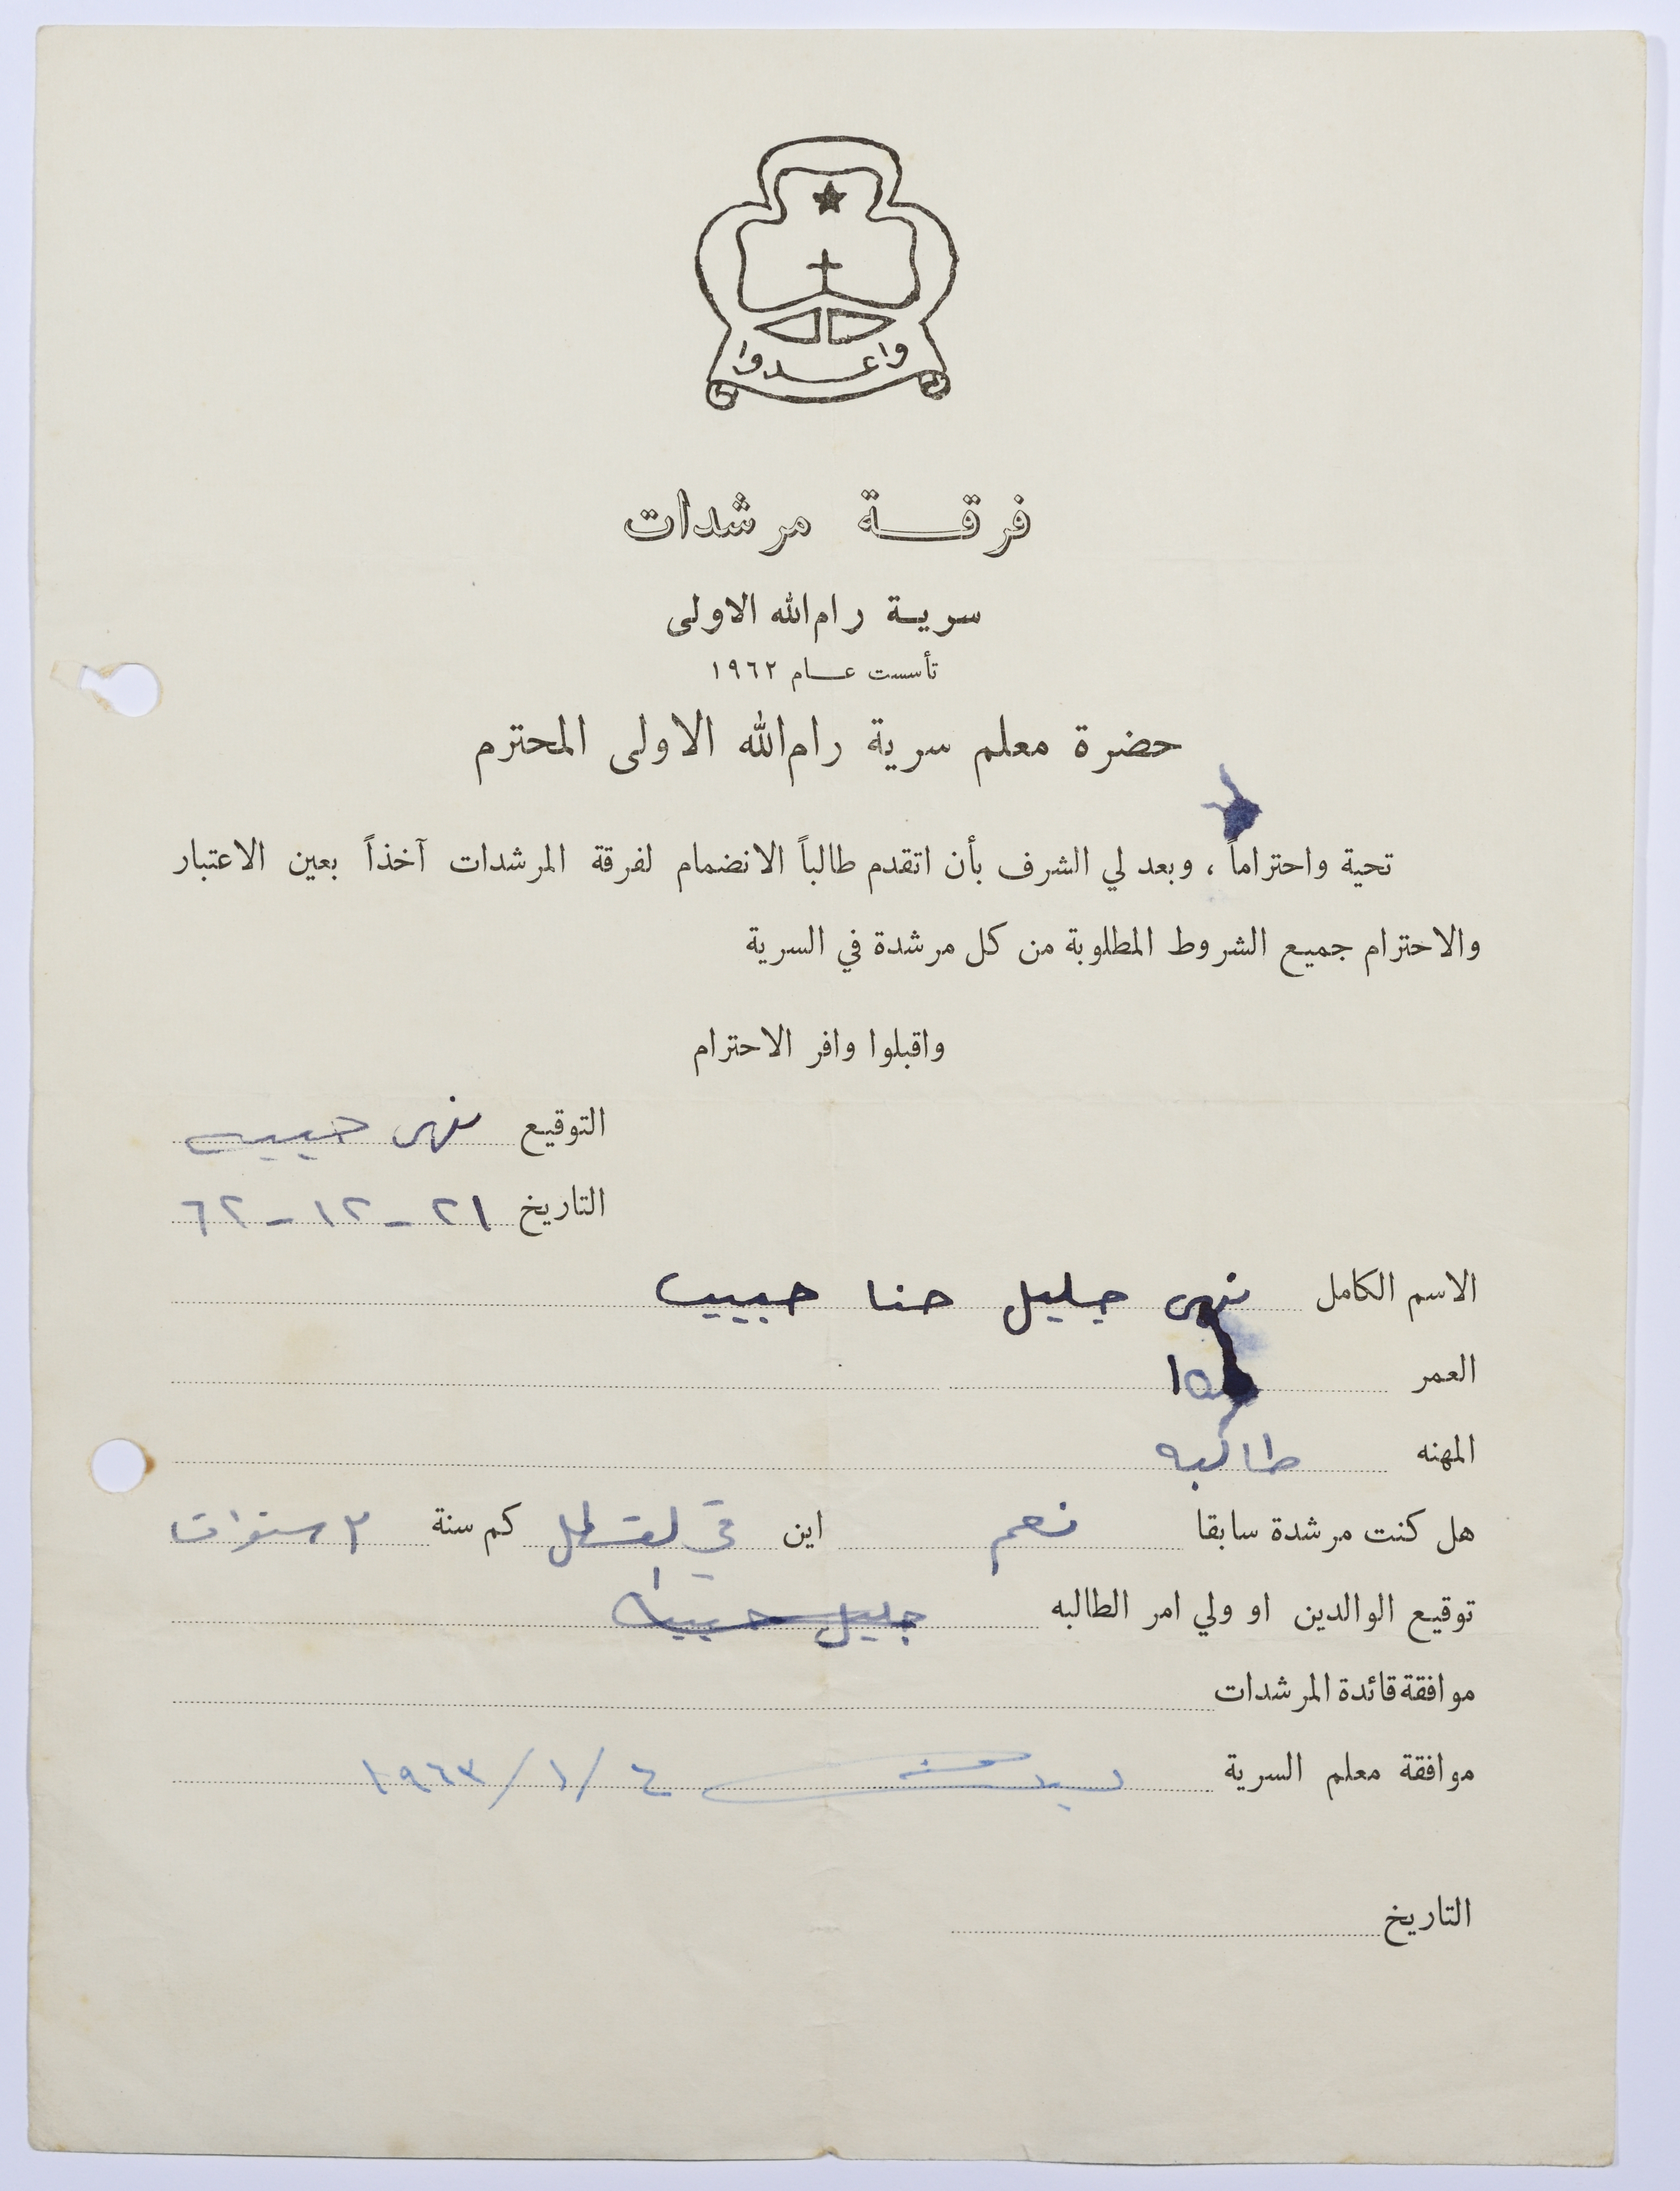 واعدوا
فرقة مرشدات
سرية رام الله الاولى
تأسست عام ١٩٦٢
حضرة معلم سرية رام الله الاولى المحترم
تحية واحتراماً ، وبعد لي الشرف بأن اتقدم طالباً الانضمام لفرقة المرشدات آخذاً بعين الاعتبار
والاحترام جميع الشروط المطلوبة من كل مرشدة في السرية
واقبلوا وافر الاحترام
التوقيع نهى حبيب
التاريخ ٢١ - ١٢ - ٦٢
الاسم الكامل نهى جليل حنا حبيب
العمر ١٥
المهنه طالبه
هل كنت مرشدة سابقا نعم اين في كم سنة ٣ سنوات
توقيع الوالدين او ولي امر الطالبه جليل حبيب
موافقة قائدة المرشدات
موافقة معلم السرية ٤ / ١ / ١٩٦٣
التاريخ